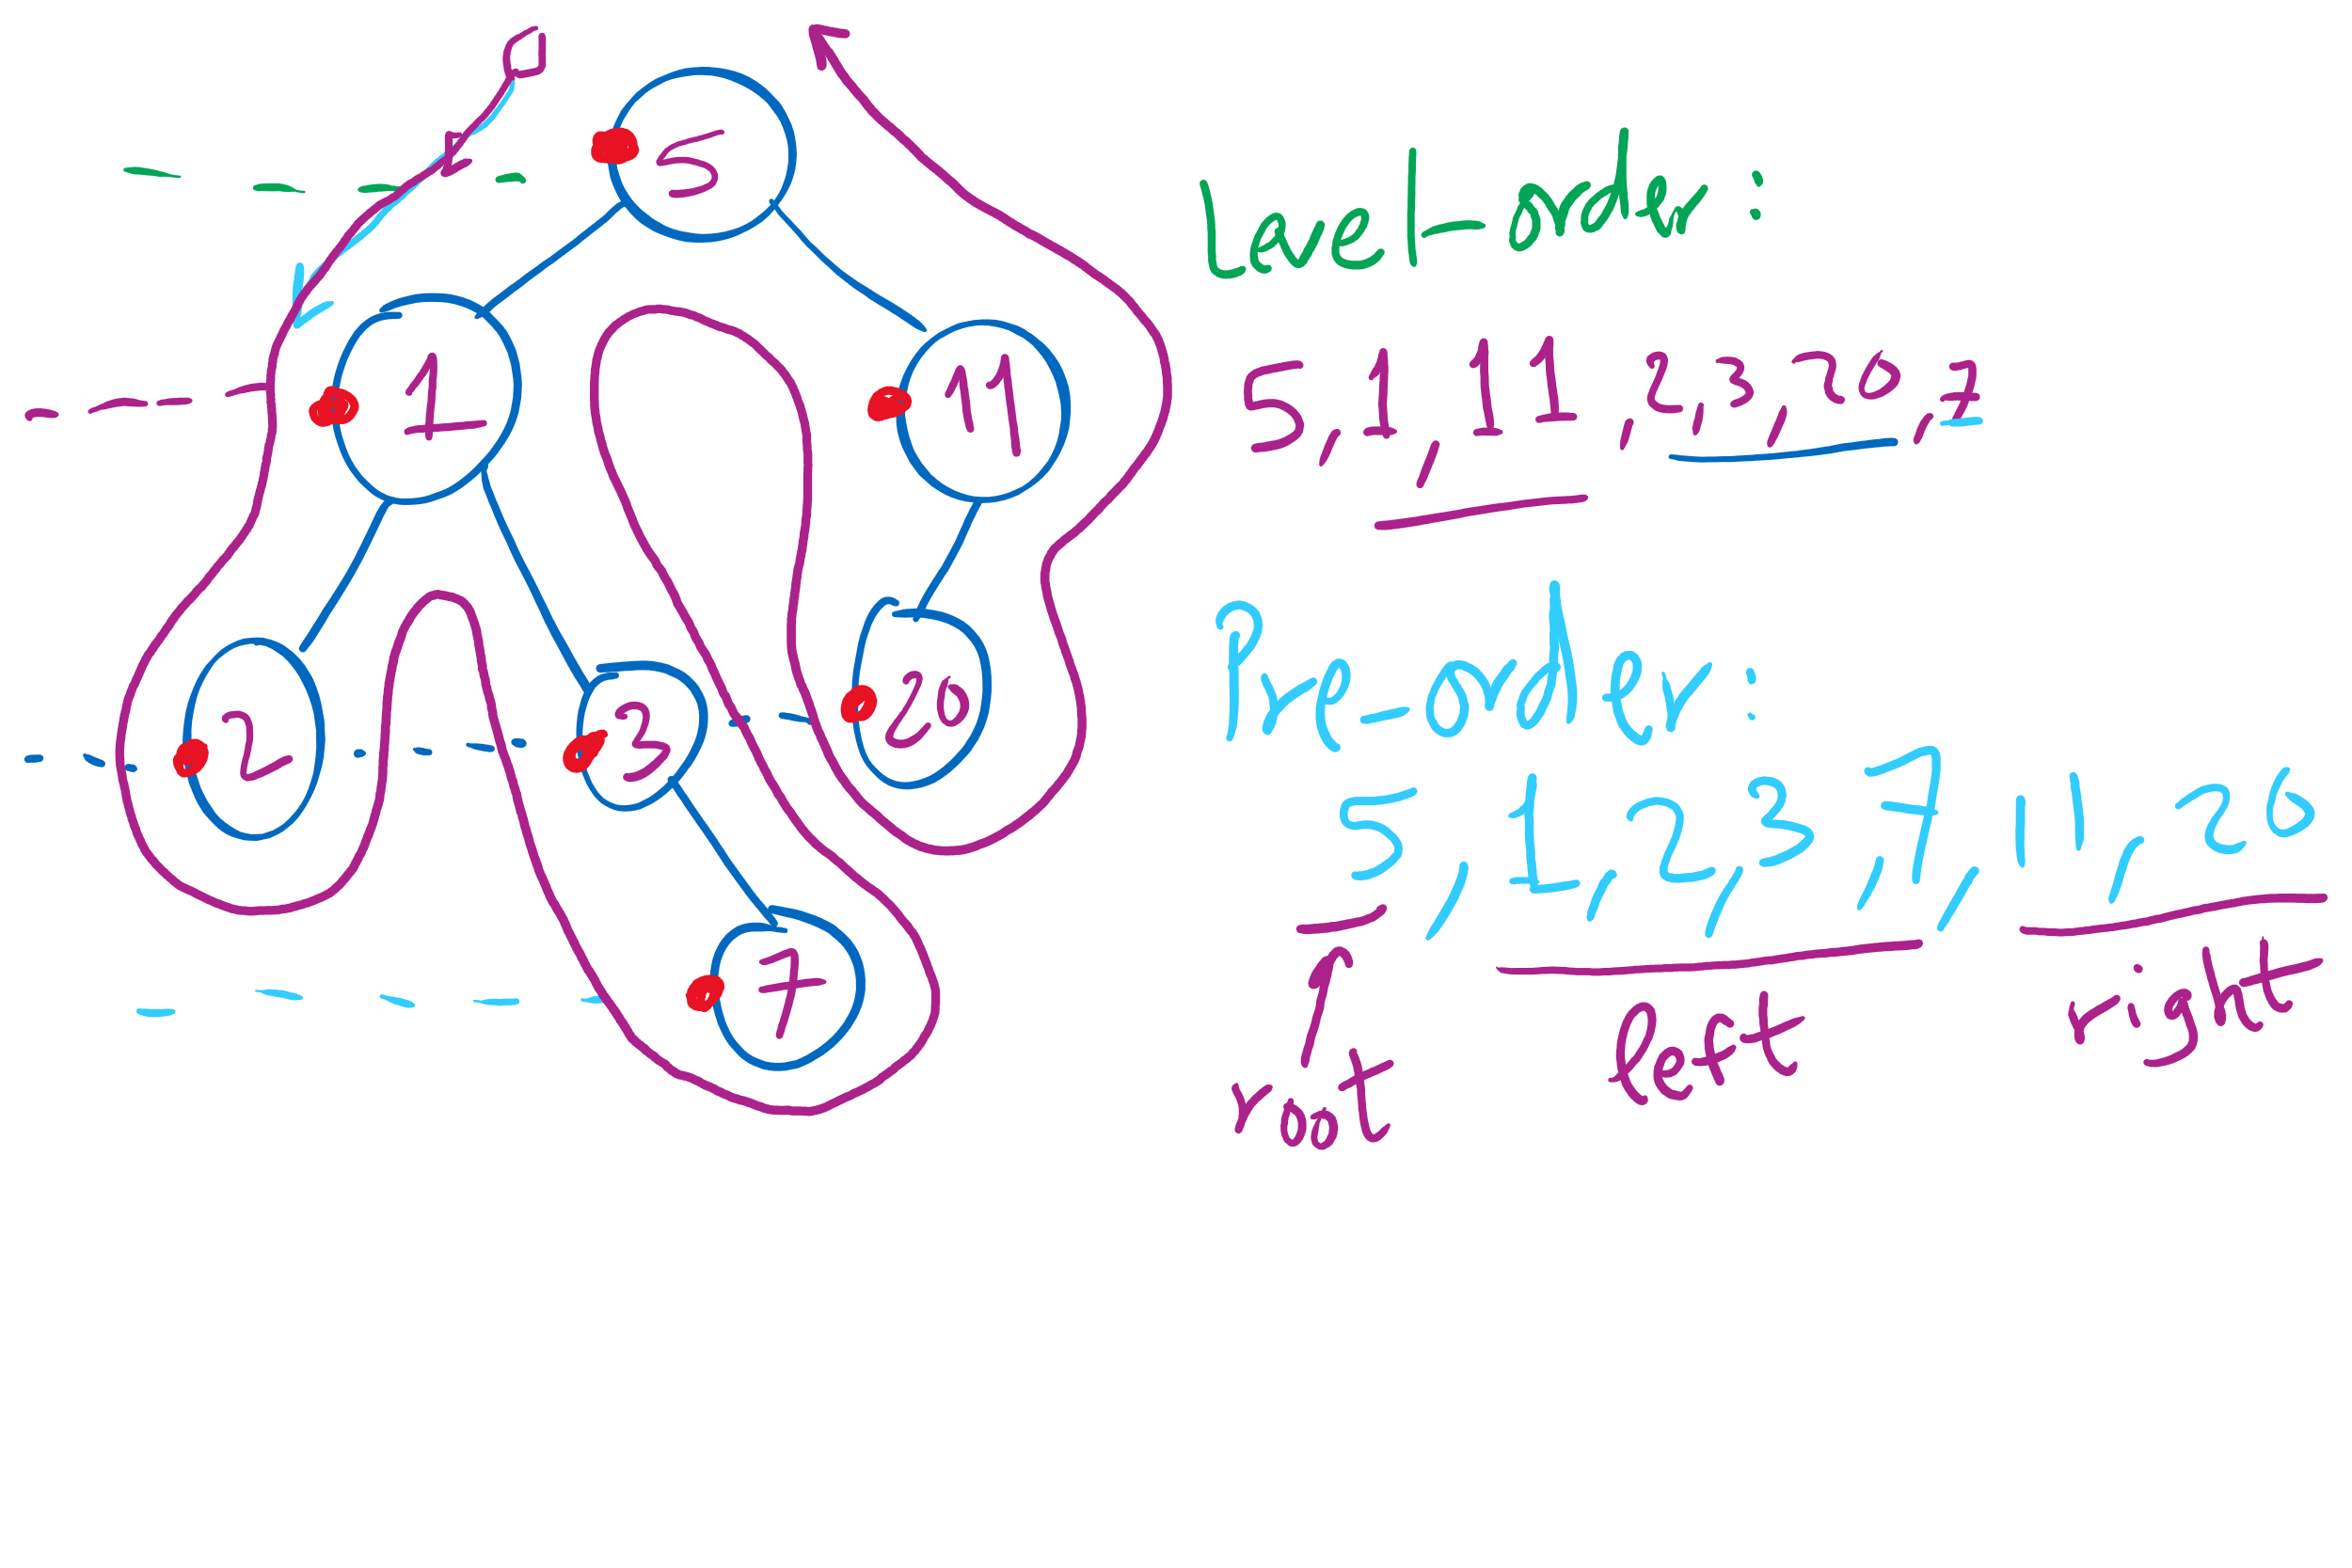 5
1
11
2
3
20
7
level-order:
5, 1, 11, 2, 3, 20, 7
Pre-order:
5, 1, 2, 3, 7, 11, 20
root
left
right